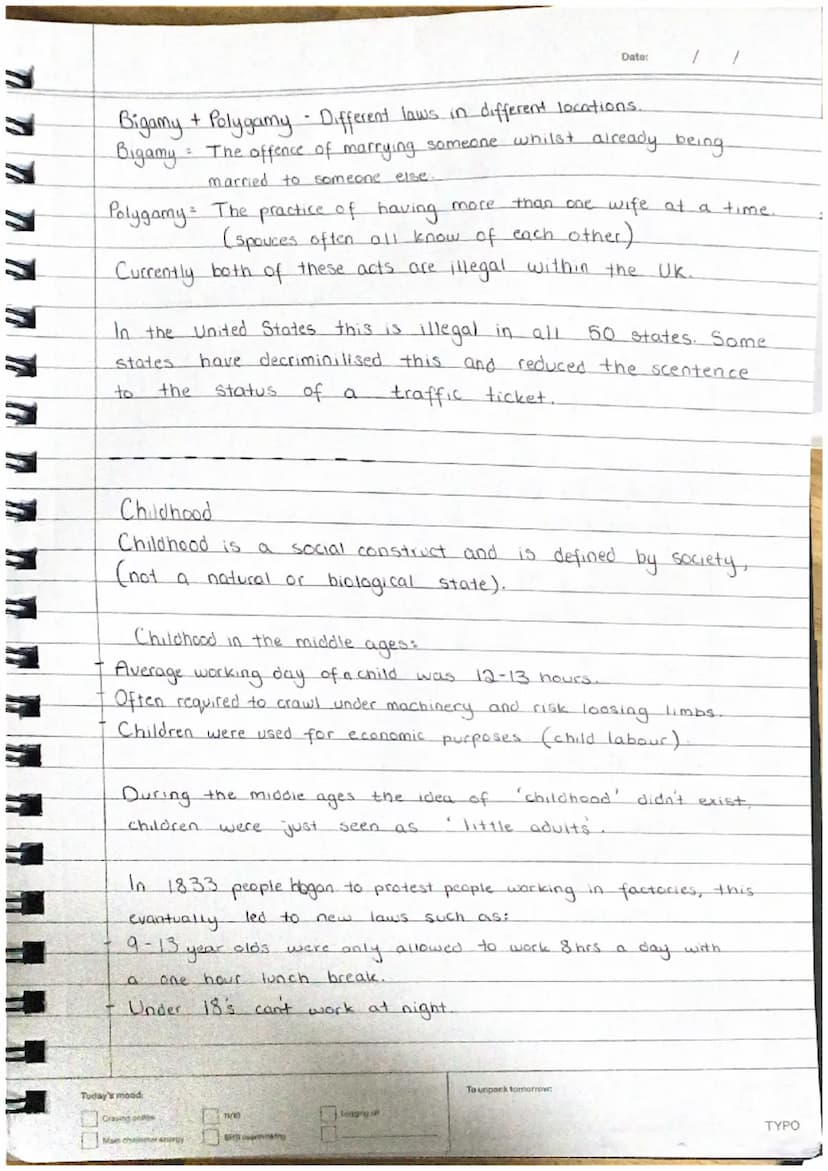 Date: / /
Bigamy + Polygamy - Different laws in different locations.
Bigamy = The offence of marrying someone whilst already being
married to someone else.
Polygamy = The practice of having more than one wife at a time.
(spouces often all know of each other)
Currently both of these acts are illegal within the UK.
In the United States this is illegal in all 50 states. Some
states have decriminilised this and reduced the scentence
to the status of a traffic ticket.
Childhood
Childhood is a social construct and is defined by society,
(not a natural or biological state).
Childhood in the middle ages:
- Average working day of a child was 12-13 hours.
- Often required to crawl under machinery and risk loosing limbs.
- Children were used for economic purposes (child labour)
During the middle ages the idea of 'childhood' didn't exist,
children were just seen as 'little adults'.
In 1833 people began to protest people working in factories, this
evantually led to new laws such as:
- 9-13 year olds were only allowed to work 8hrs a day with
a one hour lunch break.
- Under 18's can't work at night.
Today's mood:
To unpack tomorrow:
Craving coffee
11/10
Logging off
Main character energy
Still overthinking
TYPO